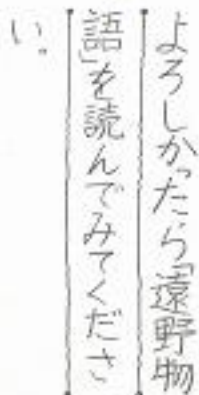 よろしかったら「遠野物
語」を読んでみてくださ
い。